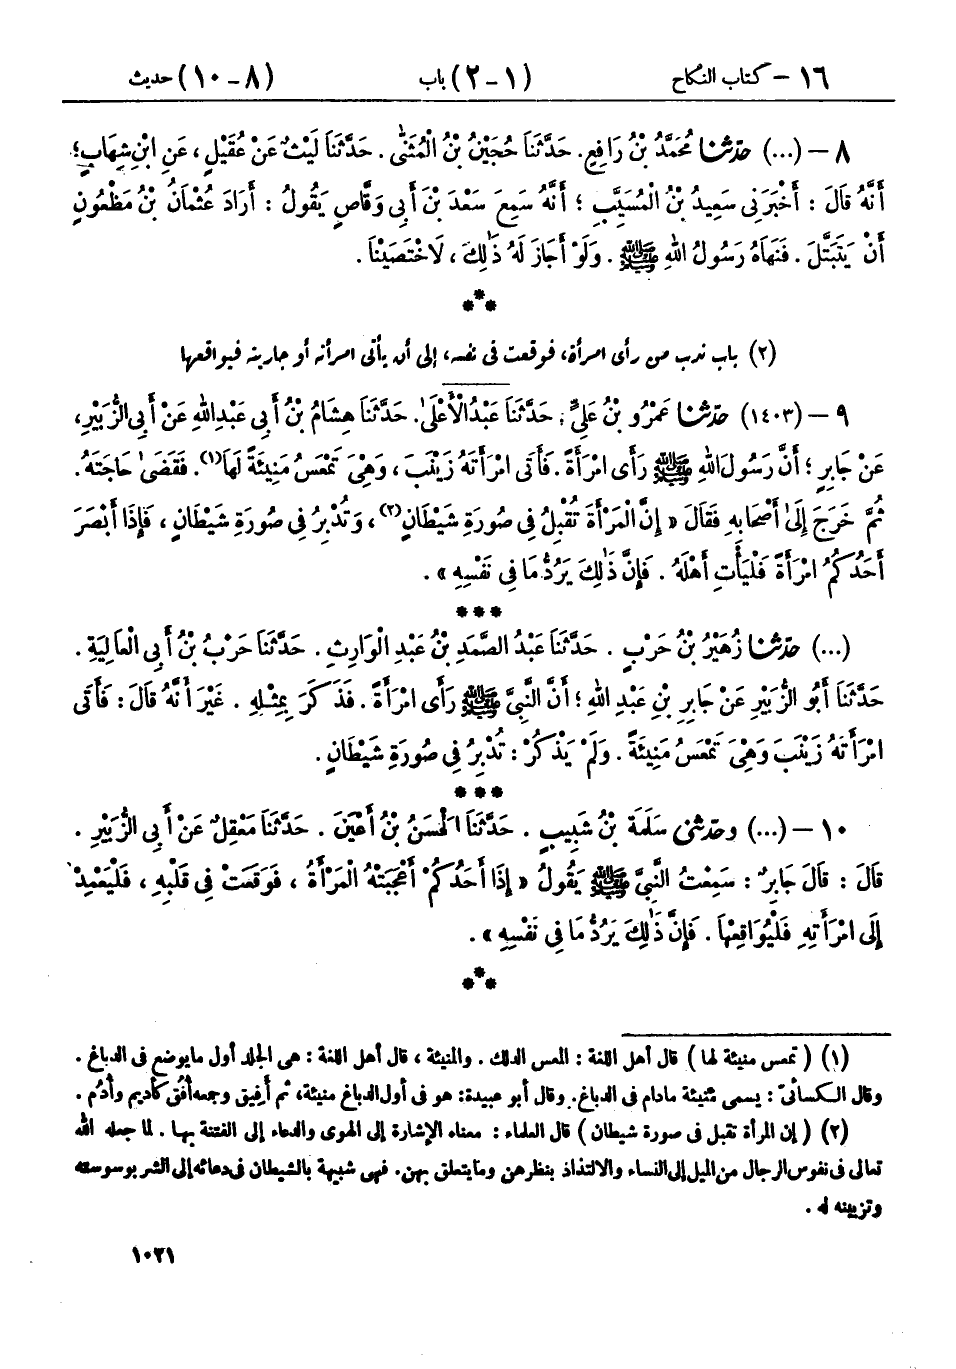 ١٦ – كتاب النكاح (١ – ٢) باب (٨ – ١٠) حديث
٨ – (...) حدّثنا مُحَمَّدُ بْنُ رَافِعٍ. حَدَّثَنَا حُجَيْنُ بْنُ الْمُثَنَّى. حَدَّثَنَا لَيْثٌ عَنْ عُقَيْلٍ، عَنِ ابْنِ شِهَابٍ؛
أَنَّهُ قَالَ : أَخْبَرَنِي سَعِيدُ بْنُ الْمُسَيَّبِ ؛ أَنَّهُ سَمِعَ سَعْدَ بْنَ أَبِي وَقَّاصٍ يَقُولُ : أَرَادَ عُثْمَانُ بْنُ مَظْعُونٍ
أَنْ يَتَبَتَّلَ . فَنَهَاهُ رَسُولُ اللهِ ﷺ . وَلَوْ أَجَازَ لَهُ ذَٰلِكَ ، لَاخْتَصَيْنَا .
***
(٢) باب ندب من رأى امرأة، فوقعت فى نفسه، إلى أن يأتى امرأته أو جاريته فيواقعها
٩ – (١٤٠٣) حدّثنا عَمْرُو بْنُ عَلِيٍّ. حَدَّثَنَا عَبْدُ الْأَعْلَىٰ. حَدَّثَنَا هِشَامُ بْنُ أَبِي عَبْدِ اللهِ عَنْ أَبِي الزُّبَيْرِ،
عَنْ جَابِرٍ ؛ أَنَّ رَسُولَ اللهِ ﷺ رَأَى امْرَأَةً . فَأَتَى امْرَأَتَهُ زَيْنَبَ ، وَهْيَ تَمْعَسُ مَنِيئَةً لَهَا(١). فَقَضَىٰ حَاجَتَهُ.
ثُمَّ خَرَجَ إِلَىٰ أَصْحَابِهِ فَقَالَ « إِنَّ الْمَرْأَةَ تُقْبِلُ فِي صُورَةِ شَيْطَانٍ(٢) ، وَتُدْبِرُ فِي صُورَةِ شَيْطَانٍ ، فَإِذَا أَبْصَرَ
أَحَدُكُمُ امْرَأَةً فَلْيَأْتِ أَهْلَهُ . فَإِنَّ ذَٰلِكَ يَرُدُّ مَا فِي نَفْسِهِ » .
***
(...) حدّثنا زُهَيْرُ بْنُ حَرْبٍ . حَدَّثَنَا عَبْدُ الصَّمَدِ بْنُ عَبْدِ الْوَارِثِ . حَدَّثَنَا حَرْبُ بْنُ أَبِي الْعَالِيَةِ .
حَدَّثَنَا أَبُو الزُّبَيْرِ عَنْ جَابِرِ بْنِ عَبْدِ اللهِ ؛ أَنَّ النَّبِيَّ ﷺ رَأَى امْرَأَةً . فَذَكَرَ بِمِثْلِهِ . غَيْرَ أَنَّهُ قَالَ : فَأَتَى
امْرَأَتَهُ زَيْنَبَ وَهْيَ تَمْعَسُ مَنِيئَةً . وَلَمْ يَذْكُرْ : تُدْبِرُ فِي صُورَةِ شَيْطَانٍ .
***
١٠ – (...) وحدّثنى سَلَمَةُ بْنُ شَبِيبٍ . حَدَّثَنَا الْحَسَنُ بْنُ أَعْيَنَ . حَدَّثَنَا مَعْقِلٌ عَنْ أَبِي الزُّبَيْرِ .
قَالَ : قَالَ جَابِرٌ : سَمِعْتُ النَّبِيَّ ﷺ يَقُولُ « إِذَا أَحَدُكُمْ أَعْجَبَتْهُ الْمَرْأَةُ ، فَوَقَعَتْ فِي قَلْبِهِ ، فَلْيَعْمِدْ
إِلَى امْرَأَتِهِ فَلْيُوَاقِعْهَا . فَإِنَّ ذَٰلِكَ يَرُدُّ مَا فِي نَفْسِهِ » .
***
(١) ( تمعس منيئة لها ) قال أهل اللغة : المعس الدلك . والمنيئة ، قال أهل اللغة : هى الجلد أول مايوضع فى الدباغ .
وقال الكسائىّ : يسمى منيئة مادام فى الدباغ. وقال أبو عبيدة: هو فى أول الدباغ منيئة، ثم أَفِيق وجمعه أُفُق كأديم وأُدُم .
(٢) ( إن المرأة تقبل فى صورة شيطان ) قال العلماء : معناه الإشارة إلى الهوى والدعاء إلى الفتنة بها . لما جعله الله
تعالى فى نفوس الرجال من الميل إلى النساء والالتذاذ بنظرهن ومايتعلق بهن. فهى شبيهة بالشيطان فى دعائه إلى الشر بوسوسته
وتزيينه له .
١٠٢١